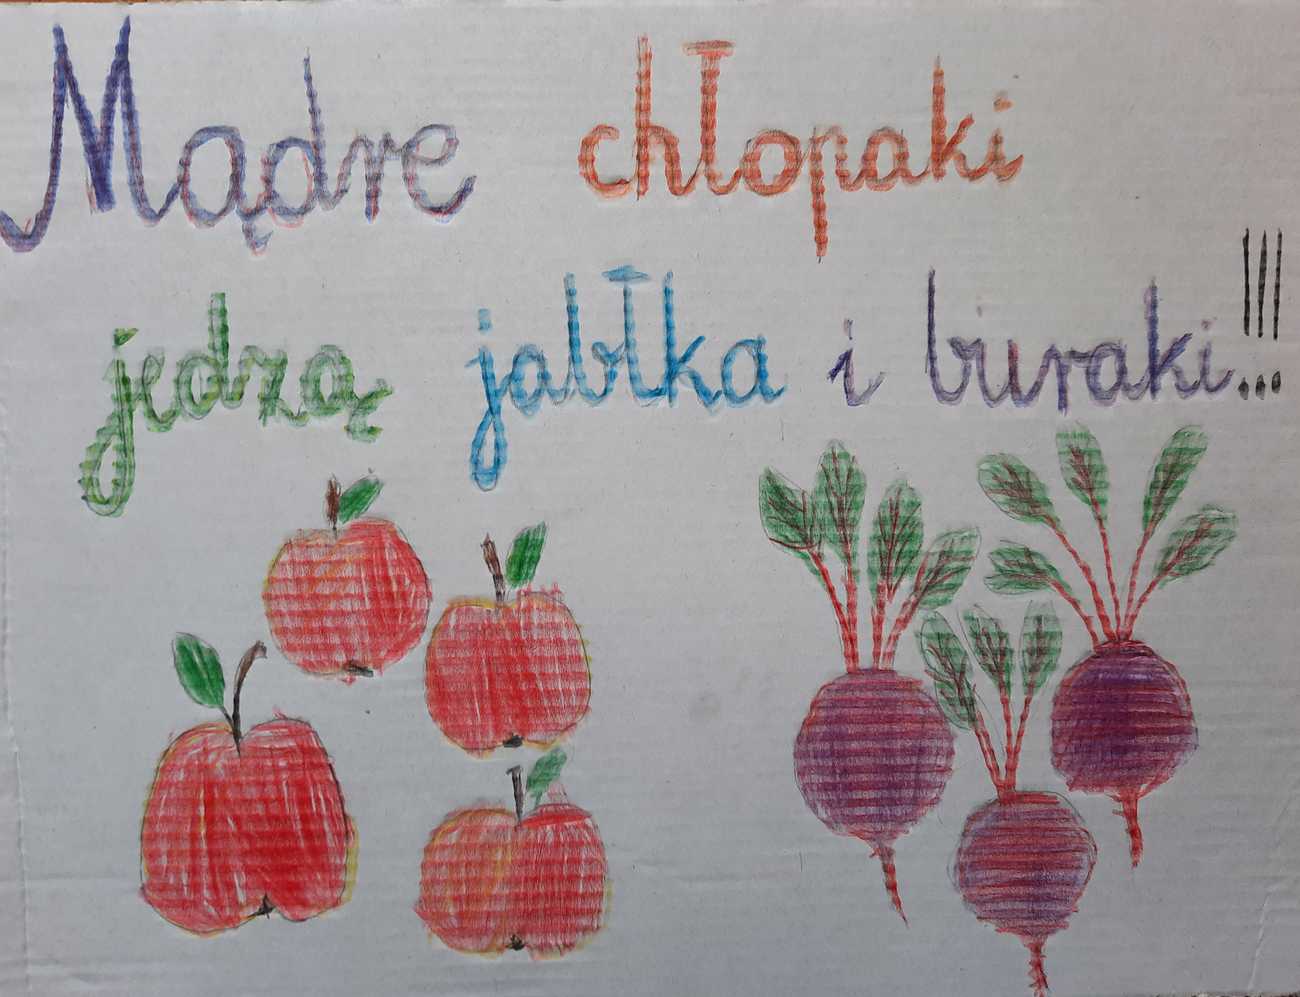 Mądre chłopaki
jedzą jabłka i buraki!!!